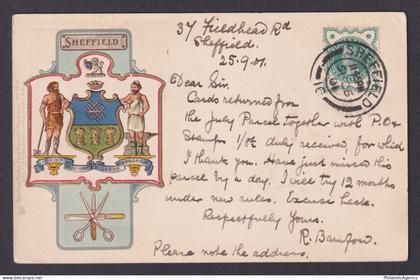 SHEFFIELD
37 Fieldhead Rd
Sheffield.
25.9.01.
SHEFFIELD
Dear Sir.
Cards returned from
the July Parcel together with P.O &
Stamps duly received, for which
I thank you. Have just missed this
parcel by a day. I will try 12 months
under new rules. Excuse haste.
Respectfully Yours.
R. Bamford.
Please note the address.
DEO
LABOR
PROFICIT